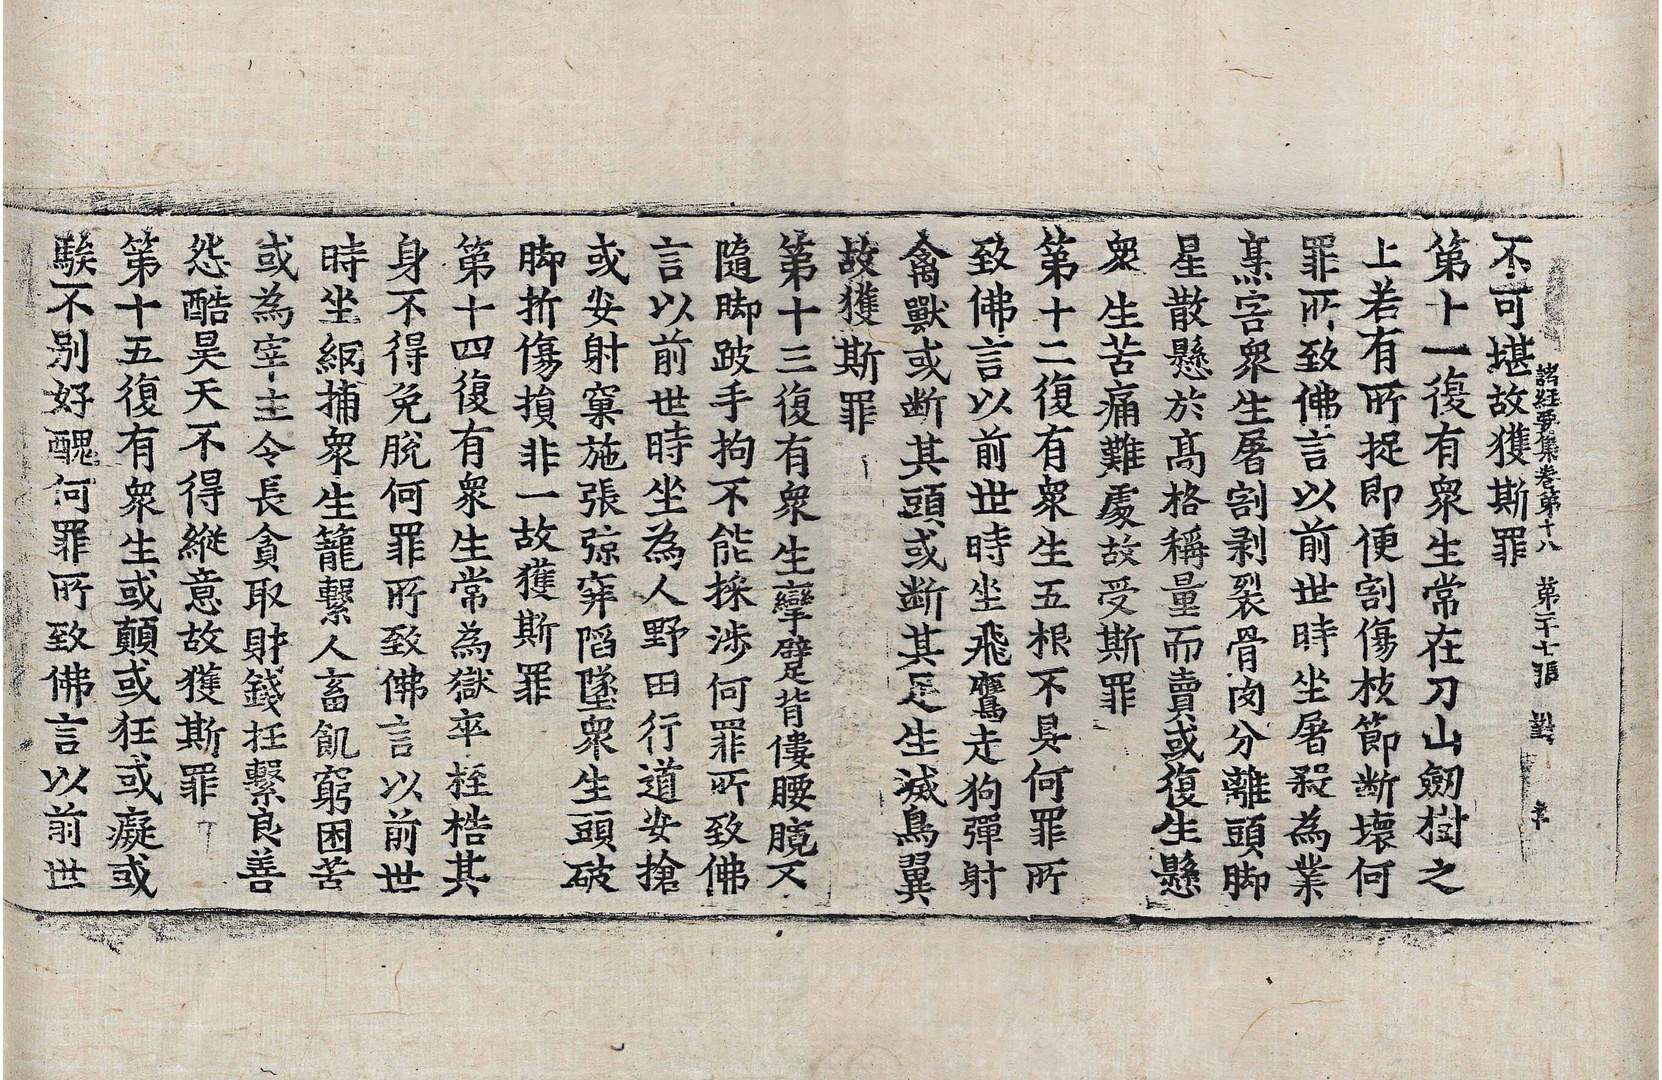 諸經要集卷第十八　第二十七張　對
不可堪故獲斯罪
第十一復有衆生常在刀山劒樹之
上若有所捉即便割傷枝節断壞何
罪所致佛言以前世時坐屠殺為業
烹害衆生屠割剥裂骨肉分離頭脚
星散懸於高格稱量而賣或復生懸
衆生苦痛難處故受斯罪
第十二復有衆生五根不具何罪所
致佛言以前世時坐飛鷹走狗彈射
禽獸或断其頭或断其足生滅鳥翼
故獲斯罪
第十三復有衆生攣躄背僂腰髖不
隨脚跛手拘不能操涉何罪所致佛
言以前世時坐為人野田行道安搶
或安射窠施張弶穽陷墜衆生頭破
脚折傷損非一故獲斯罪
第十四復有衆生常為獄卒桎梏其
身不得免脫何罪所致佛言以前世
時坐網捕衆生籠繫人畜飢窮困苦
或為宰主令長貪取財錢抂繫良善
怨酷昊天不得縱意故獲斯罪
第十五復有衆生或顛或狂或癡或
騃不别好醜何罪所致佛言以前世